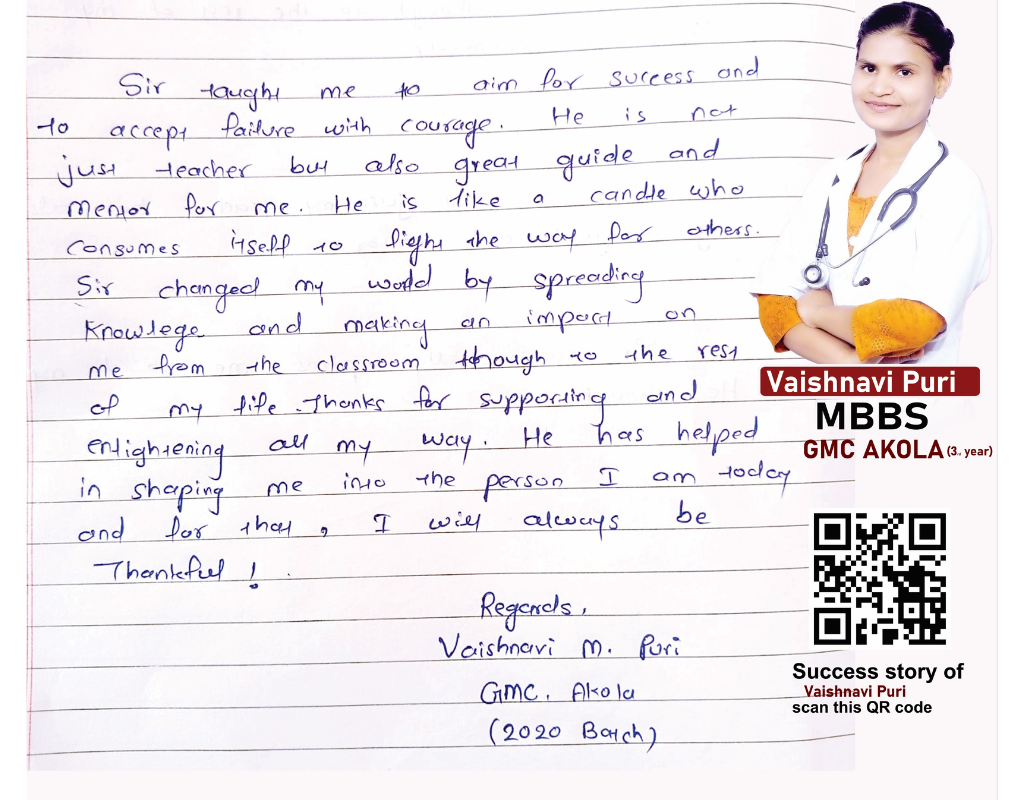 Sir taught me to aim for success and
to accept failure with courage. He is not
just teacher but also great guide and
mentor for me. He is like a candle who
consumes itself to light the way for others.
Sir changed my world by spreading
knowlege and making an impact on
me from the classroom though to the rest
of my life. Thanks for supporting and
enlightening all my way. He has helped
in shaping me into the person I am today
and for that, I will always be
Thankful!
Regards,
Vaishnavi M. Puri
GMC. Akola
(2020 Batch)
Vaishnavi Puri
MBBS
GMC AKOLA (3rd year)
Success story of
Vaishnavi Puri
scan this QR code